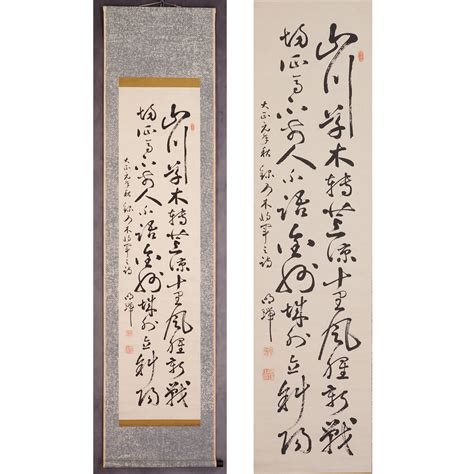 山川草木轉荒涼十里風腥新戰
場征馬不前人不語金州城外立斜陽
大正元年秋録乃木将軍之詩
山川草木轉荒涼十里風腥新戰
場征馬不前人不語金州城外立斜陽
大正元年秋録乃木将軍之詩